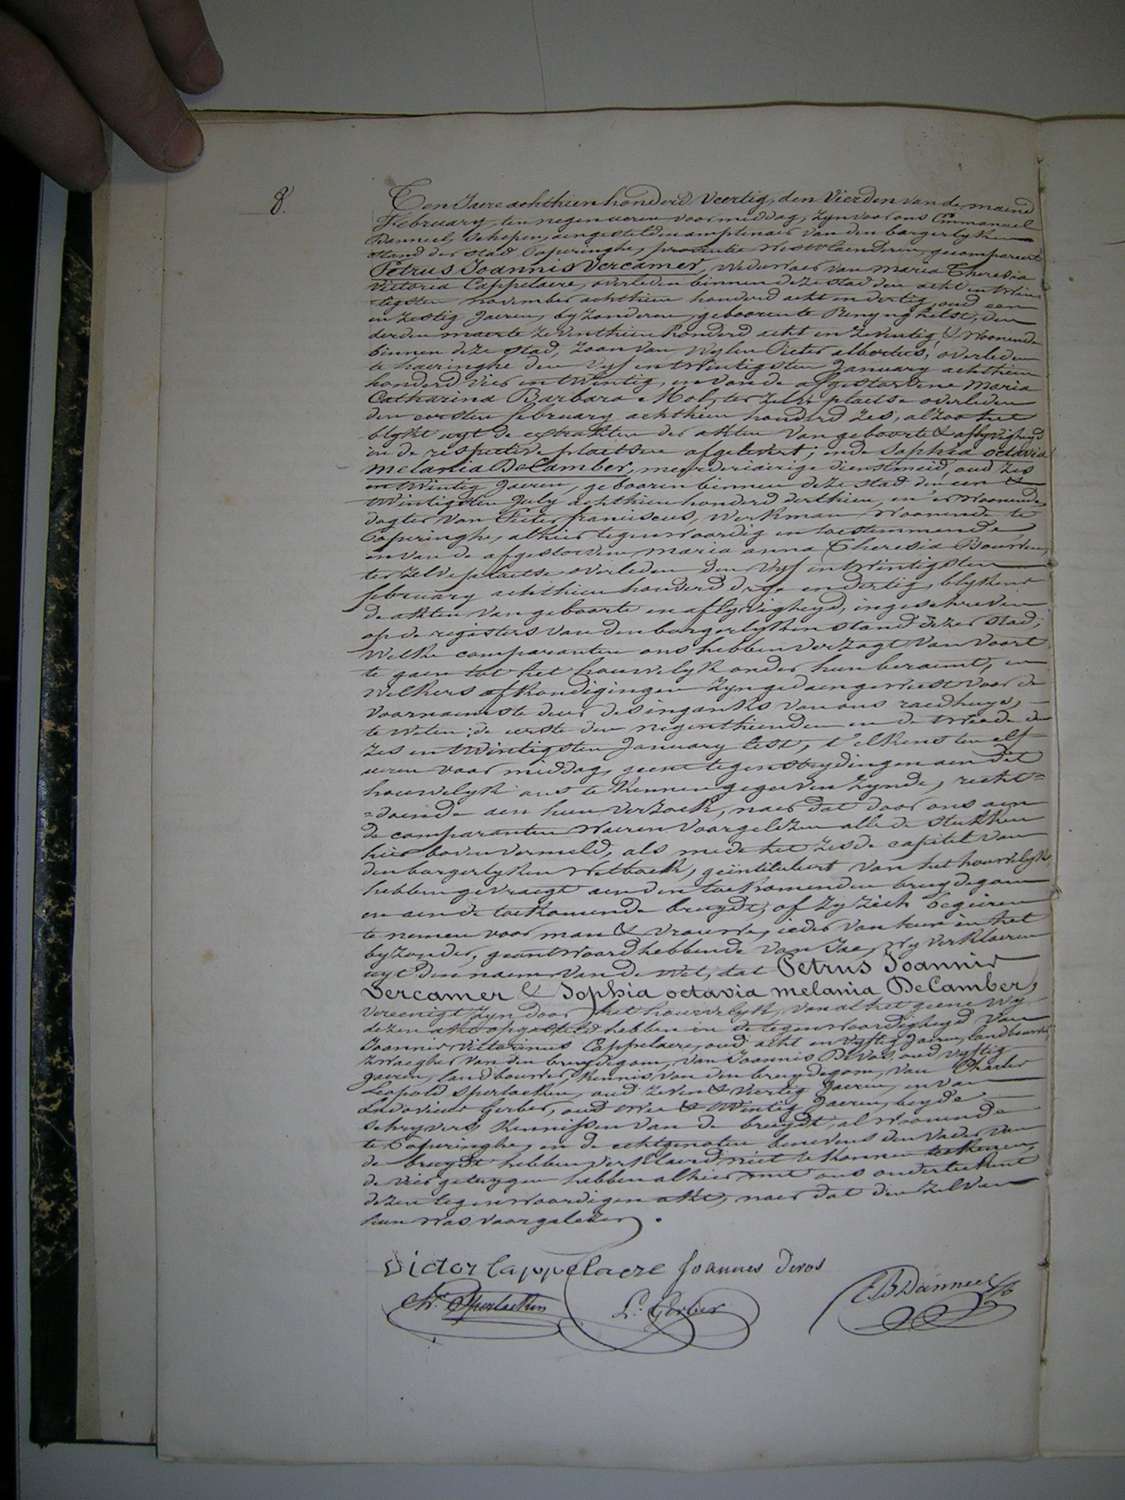 8.
Ten Jaere achthien honderd veertig, den vierden van de maend
february, ten negen ueren voormiddag, zyn voor ons Emmanuel
Banneel, schepen, aengestelden amptenaer van den borgerlyken
stand der stad Poperinghe, provintie Westvlaenderen, gecompareert
Petrus Joannis Vercamer, weduwaer van Maria Theresia
Victoria Cappelaere, overleden binnen deze stad den acht en twin-
tigsten november achthien honderd acht en dertig, oud een
en zestig Jaeren, byzonderen, geboren te Renynghelst, den
derden maerte zeventhien honderd acht en zeventig & woonende
binnen deze stad, zoon van wylen Pieter albertus, overleden
te haeringhe den vyf en twintigsten January achthien
honderd vier en twintig, en van de afgestorvene Maria
Catharina Barbara Mol, ter zelve plaetse overleden
den eersten february achthien honderd zes, alzoo het
blykt uyt de extrakten der akten van geboorte & aflyvigheyd
in de respective plaetsen afgelevert, ende Sophia octavia
melania DeCamber, meerderjarige dienstmeid, oud zes
en twintig Jaeren, geboren binnen deze stad den een &
twintigsten July achthien honderd derthien, en er woonende
dogter van Pieter franciscus, werkman woonende te
Poperinghe, alhier tegenwoordig en toestemmende
en van de afgestorven maria anna Theresia
ter zelve plaetse overleden den vyf en twintigsten
february achthien honderd drye en dertig, blykens
de akten van geboorte en aflyvigheyd, ingeschreven
op de registers van den borgerlyken stand dezer stad;
Welke comparanten ons hebben verzogt van voort
te gaen tot het houwelyk onder hun beraemt, en
welkers afkondigingen zyn gedaen geweest voor de
voornaemste deur des ingangks van ons raedhuys,
te weten: de eerste den negenthienden en de tweede den
zes en twintigsten January lest, t'elkens ten elf
ueren voor middag, geene tegenstrydingen aen dit
houwelyk ons te kennen gegeven zynde, recht-
=doende aen hun verzoek, naer dat door ons aen
de comparanten waeren voorgelezen alle de stukken
hier boven vermeld, als mede het zesde capitel van
den borgerlyken wetboek, geïntituleert van het houwelyk,
hebben gevraegt aen den toekomenden bruydegom
en aen de toekomende bruydt, of zy zich begeiren
te nemen voor man & vrouwe, ieder van hun in het
byzonder, geantwoord hebbende van Jae, wy verklaeren
uyt den naem van de wet, dat Petrus Joannis
Vercamer & Sophia octavia melania DeCamber,
vereenigt zyn door het houwelyk, van al het geene wy
dezen akt opgesteld hebben in de tegenwoordigheyd van
Joannes Victorinus Cappelaere, oud acht en vyftig Jaeren, landbouwer
zwaegher van den bruydegom, van Joannis DeVos, oud vyftig
Jaeren, landbouwer, kennis van den bruydegom, van Charles
Leopold Sperlaeken, oud zeven & veertig Jaeren, en van
Ludovicus Gerbier, oud twee & twintig Jaeren, beyde
schryvers kennissen van de bruydt, al woonende
te Poperinghe, en de echtgenoten benevens den vader van
de bruydt hebben verklaerd niet te konnen teekenen,
de vier getuygen hebben alhier met ons onderteekent
dezen tegenwoordigen akt, naer dat den zelven
hun was voorgelezen.
Victor Cappelaere Joannes devos
Ch. Sperlaeken L. Gerbier E B Banneel